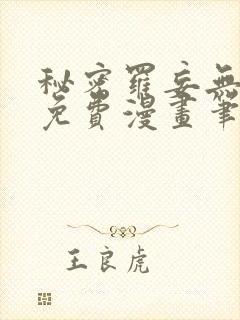 秘密羅妄無
免費漫畫筆
王良虎